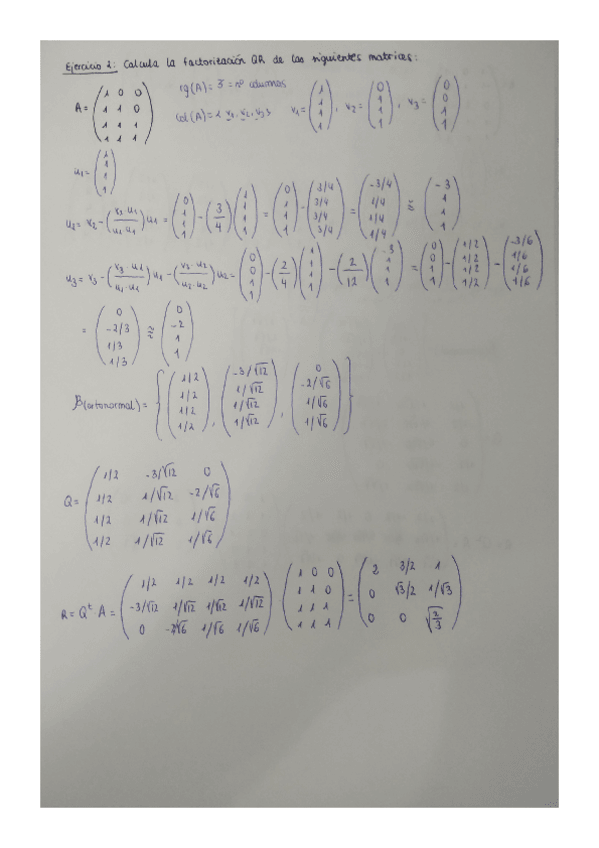 Ejercicio 2: Calcula la factorización QR de las siguientes matrices:
A = (1 0 0; 1 1 0; 1 1 1; 1 1 1) rg(A) = 3 = nº columnas
v1 = (1; 1; 1; 1), v2 = (0; 1; 1; 1), v3 = (0; 0; 1; 1)
u1 = (1; 1; 1; 1)
u2 = v2 - (v2·u1/u1·u1) u1 = (0; 1; 1; 1) - (3/4) (1; 1; 1; 1) = (0; 1; 1; 1) - (3/4; 3/4; 3/4; 3/4) = (-3/4; 1/4; 1/4; 1/4) ≅ (-3; 1; 1; 1)
u3 = v3 - (v3·u1/u1·u1) u1 - (v3·u2/u2·u2) u2 = (0; 0; 1; 1) - (2/4) (1; 1; 1; 1) - (2/12) (-3; 1; 1; 1) = (0; 0; 1; 1) - (1/2; 1/2; 1/2; 1/2) - (-3/6; 1/6; 1/6; 1/6)
= (0; -2/3; 1/3; 1/3) ≅ (0; -2; 1; 1)
β(ortonormal) = { (1/2; 1/2; 1/2; 1/2), (-3/√12; 1/√12; 1/√12; 1/√12), (0; -2/√6; 1/√6; 1/√6) }
Q = (1/2 -3/√12 0; 1/2 1/√12 -2/√6; 1/2 1/√12 1/√6; 1/2 1/√12 1/√6)
R = Qᵗ A = (1/2 1/2 1/2 1/2; -3/√12 1/√12 1/√12 1/√12; 0 -2/√6 1/√6 1/√6) (1 0 0; 1 1 0; 1 1 1; 1 1 1) = (2 3/2 1; 0 √3/2 1/√3; 0 0 √2/3)